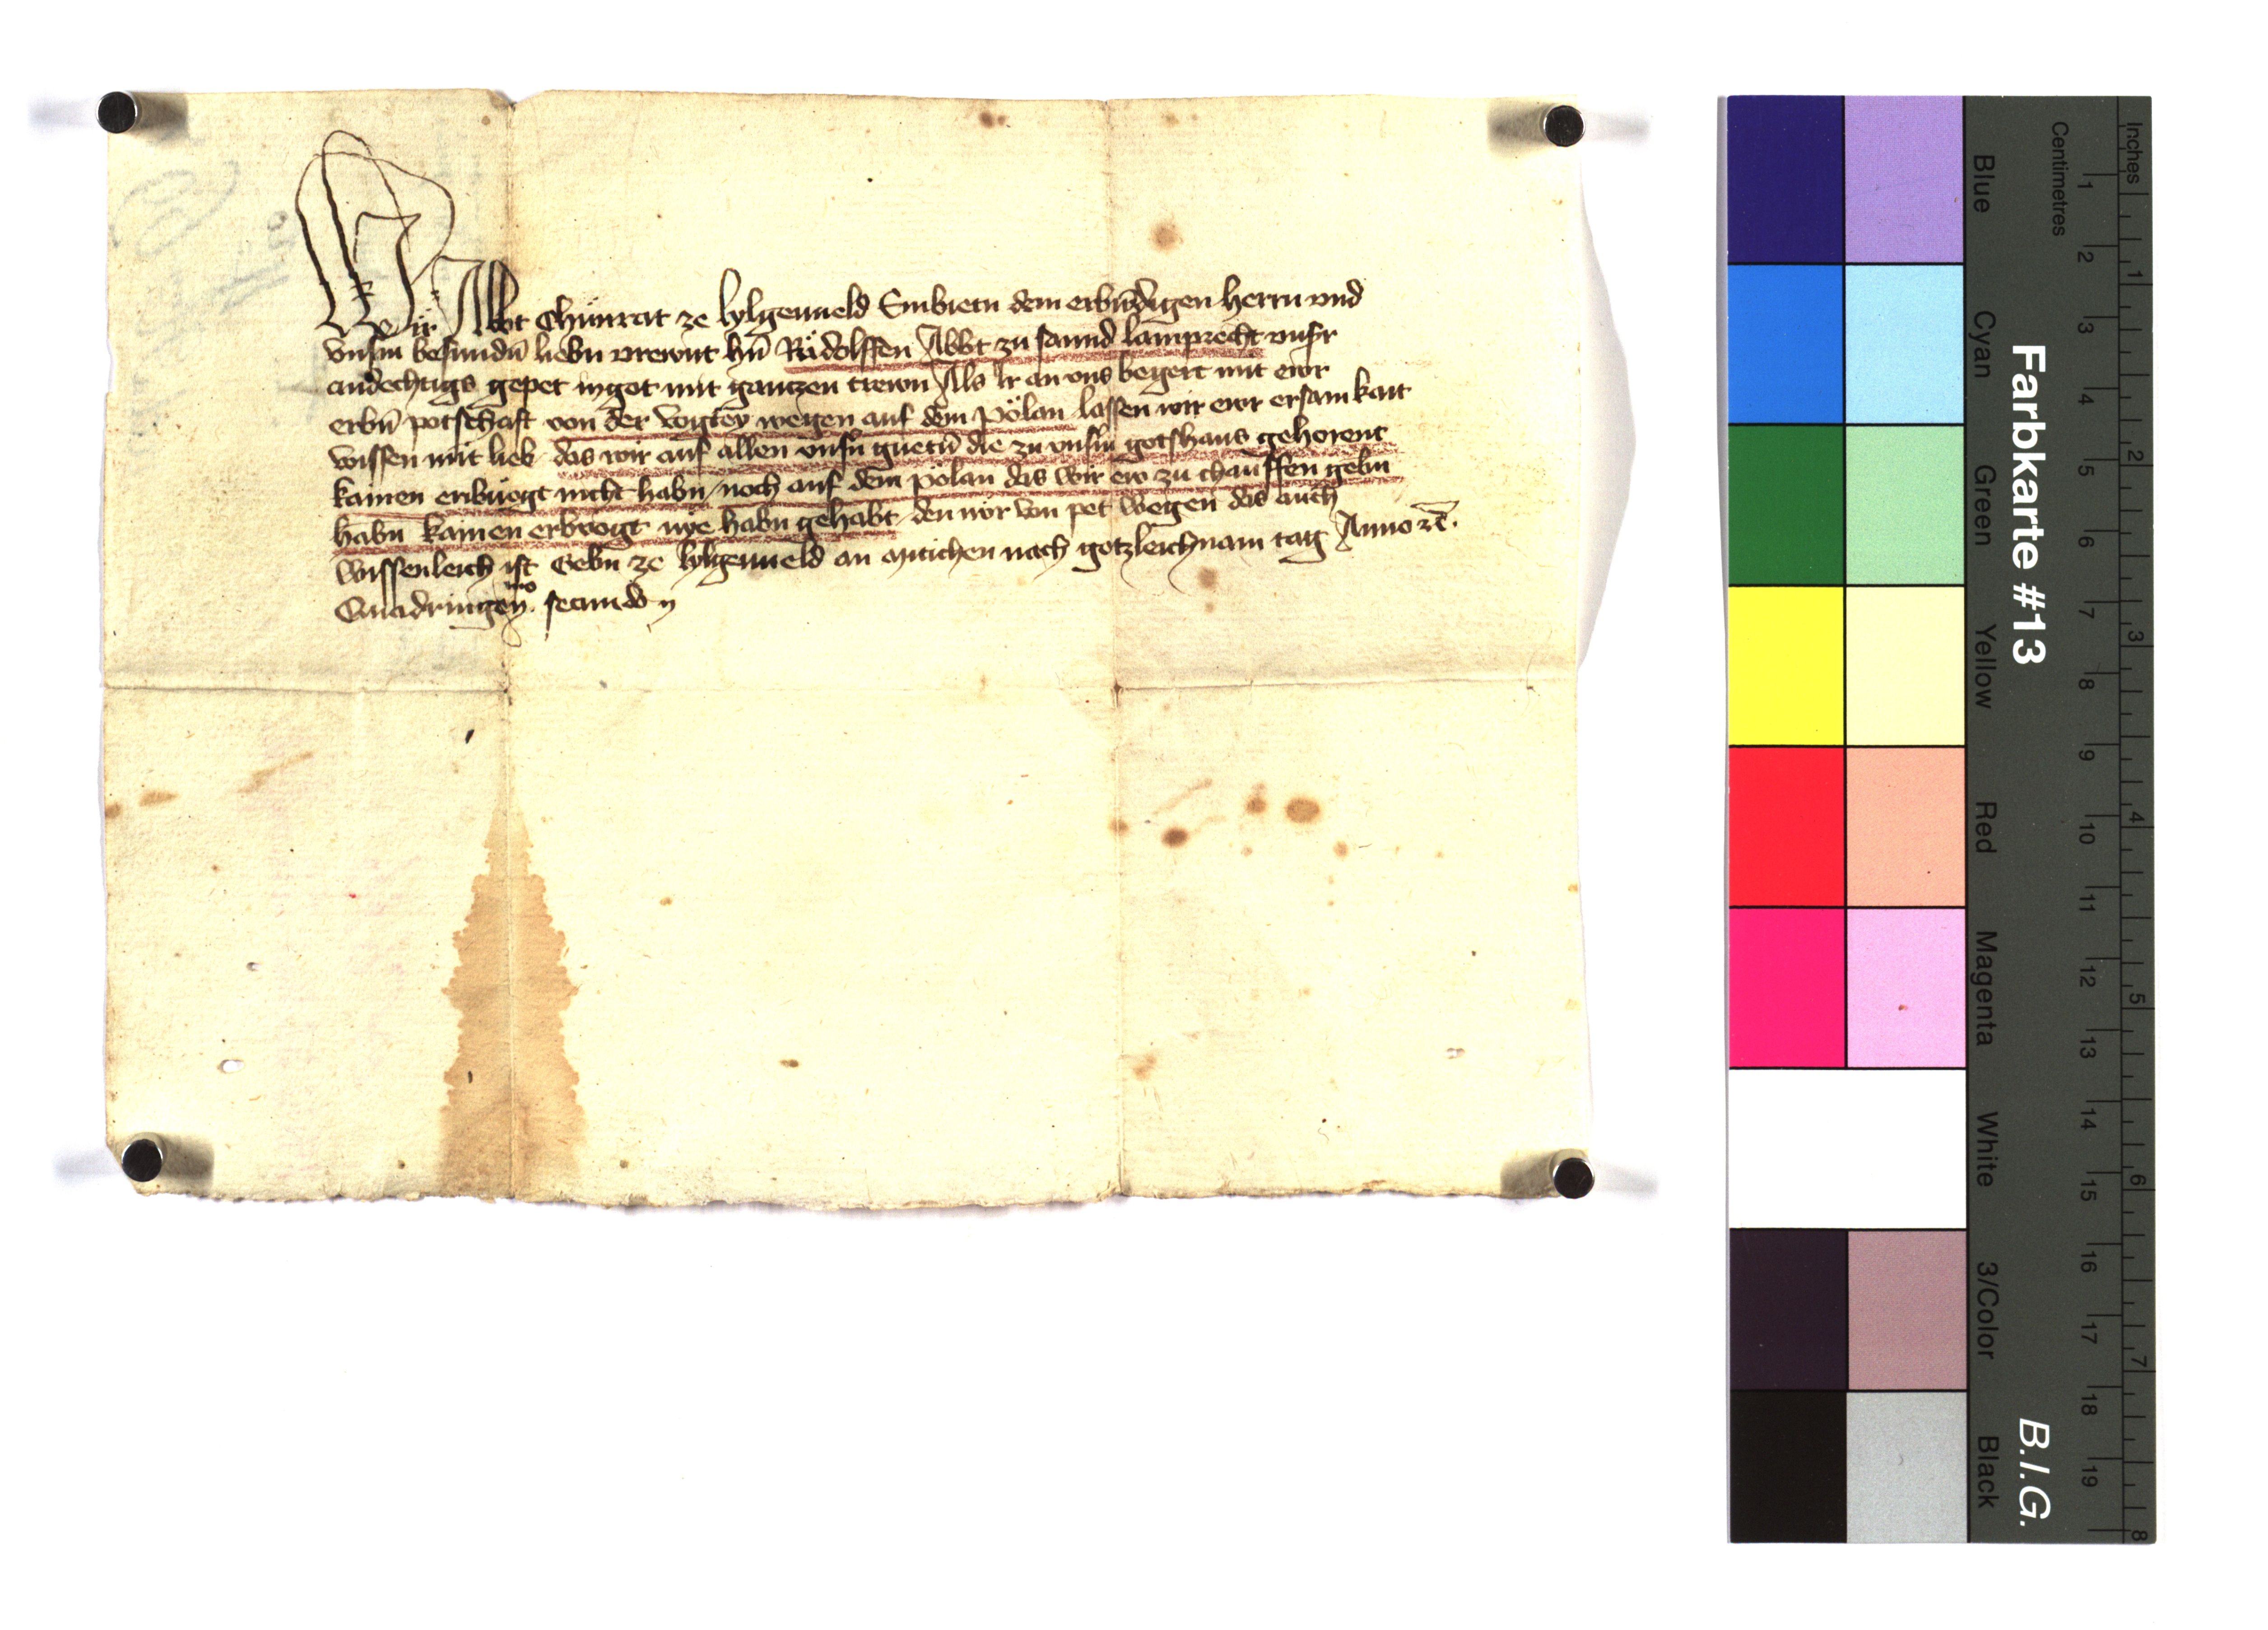 Wir Abbt Chunrat ze lylgenueld Embietn dem erbirdigen herrn vnd
vnsm besundn liebn vrewnt hn Rudolffen Abbt zu sannd lamprecht vnsr
andechtigs gepet ingot mit gantzen trewn Als Ir an vns begert mit ewr
erbn potschaft von der vogtey wegen auf dem pölan lassen wir ewr ersamkait
wissen mit lieb das wir auf allen vnsn guetn die zu vnsm gotshaus gehorent
kainen erbuogt nicht habn / noch auf dem pölan das wir ew zu chauffen gebn
habn kainen erbuogt nye habn gehabt den nor von pet wegen das auch
wissenleich ist Gebn ze lylgenueld an mitichen nach gotzleichnam tag Anno rc.
Quadringen.mo secundo
Farbkarte #13
B.I.G.
Inches
Centimetres
Blue
Cyan
Green
Yellow
Red
Magenta
White
3/Color
Black
1 2 3 4 5 6 7 8 9 10 11 12 13 14 15 16 17 18 19
1 2 3 4 5 6 7 8